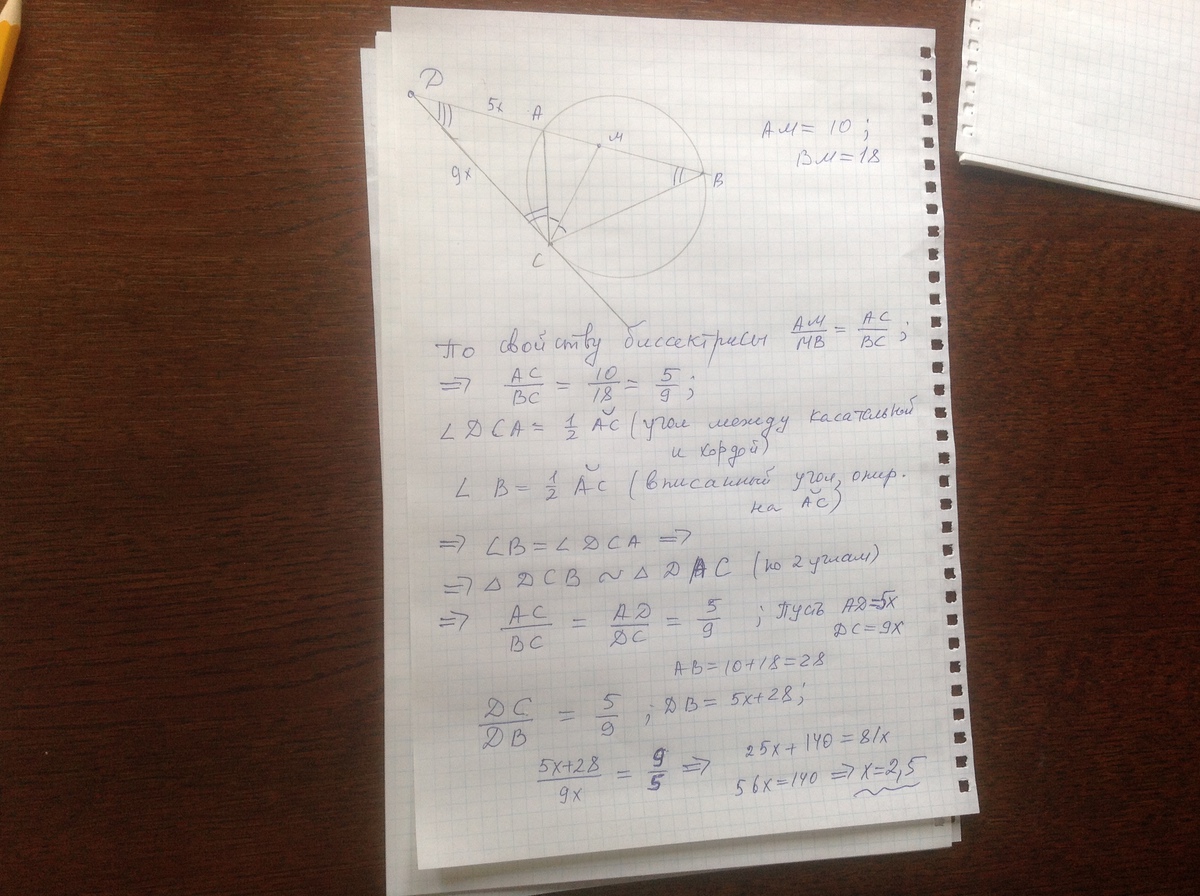 D
5x
A
M
9x
B
C
AM = 10;
BM = 18
По свойству биссектрисы AM/MB = AC/BC;
=> AC/BC = 10/18 = 5/9;
∠DCA = 1/2 ÀC (угол между касательной
и хордой)
∠ B = 1/2 ÀC (вписанный угол, опир.
на ÀC)
=> ∠B = ∠DCA =>
=> △ DCB ~ △ DAC (по 2 углам)
=> AC/BC = AD/DC = 5/9 ; Пусть AD=5x
DC=9x
AB=10+18=28
DC/DB = 5/9 ; DB = 5x+28;
(5x+28)/9x = 9/5 => 25x+140=81x
56x=140 => x=2,5